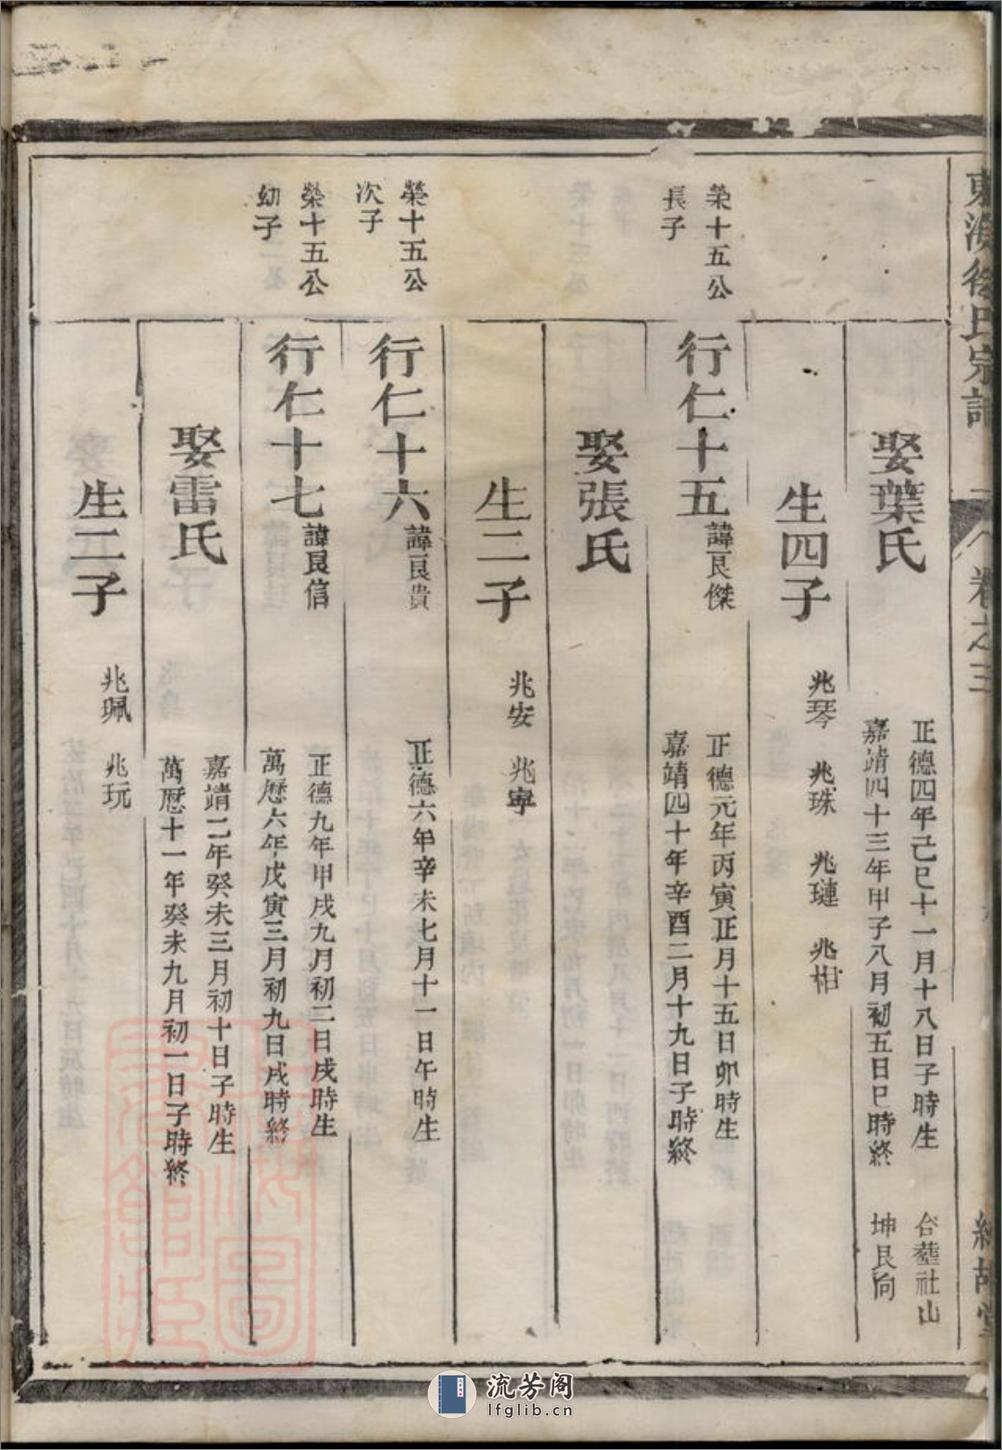 徐氏宗譜
卷之三
娶葉氏
正德四年己巳十一月十八日子時生
嘉靖四十三年甲子八月初五日巳時終
合塟社山
坤艮向
生四子
兆琴 兆珠 兆璉 兆相
榮十五公
長子
行仁十五諱良傑
正德元年丙寅正月十五日卯時生
嘉靖四十年辛酉二月十九日子時終
娶張氏
生二子
兆安 兆寧
榮十五公
次子
行仁十六諱良貴
正德六年辛未七月十一日午時生
榮十五公
幼子
行仁十七諱良信
正德九年甲戌九月初二日戌時生
萬曆六年戊寅三月初九日戌時終
娶雷氏
嘉靖二年癸未三月初十日子時生
萬曆十一年癸未九月初一日子時終
生二子
兆珮 兆玩
流芳阁
lfglib.cn